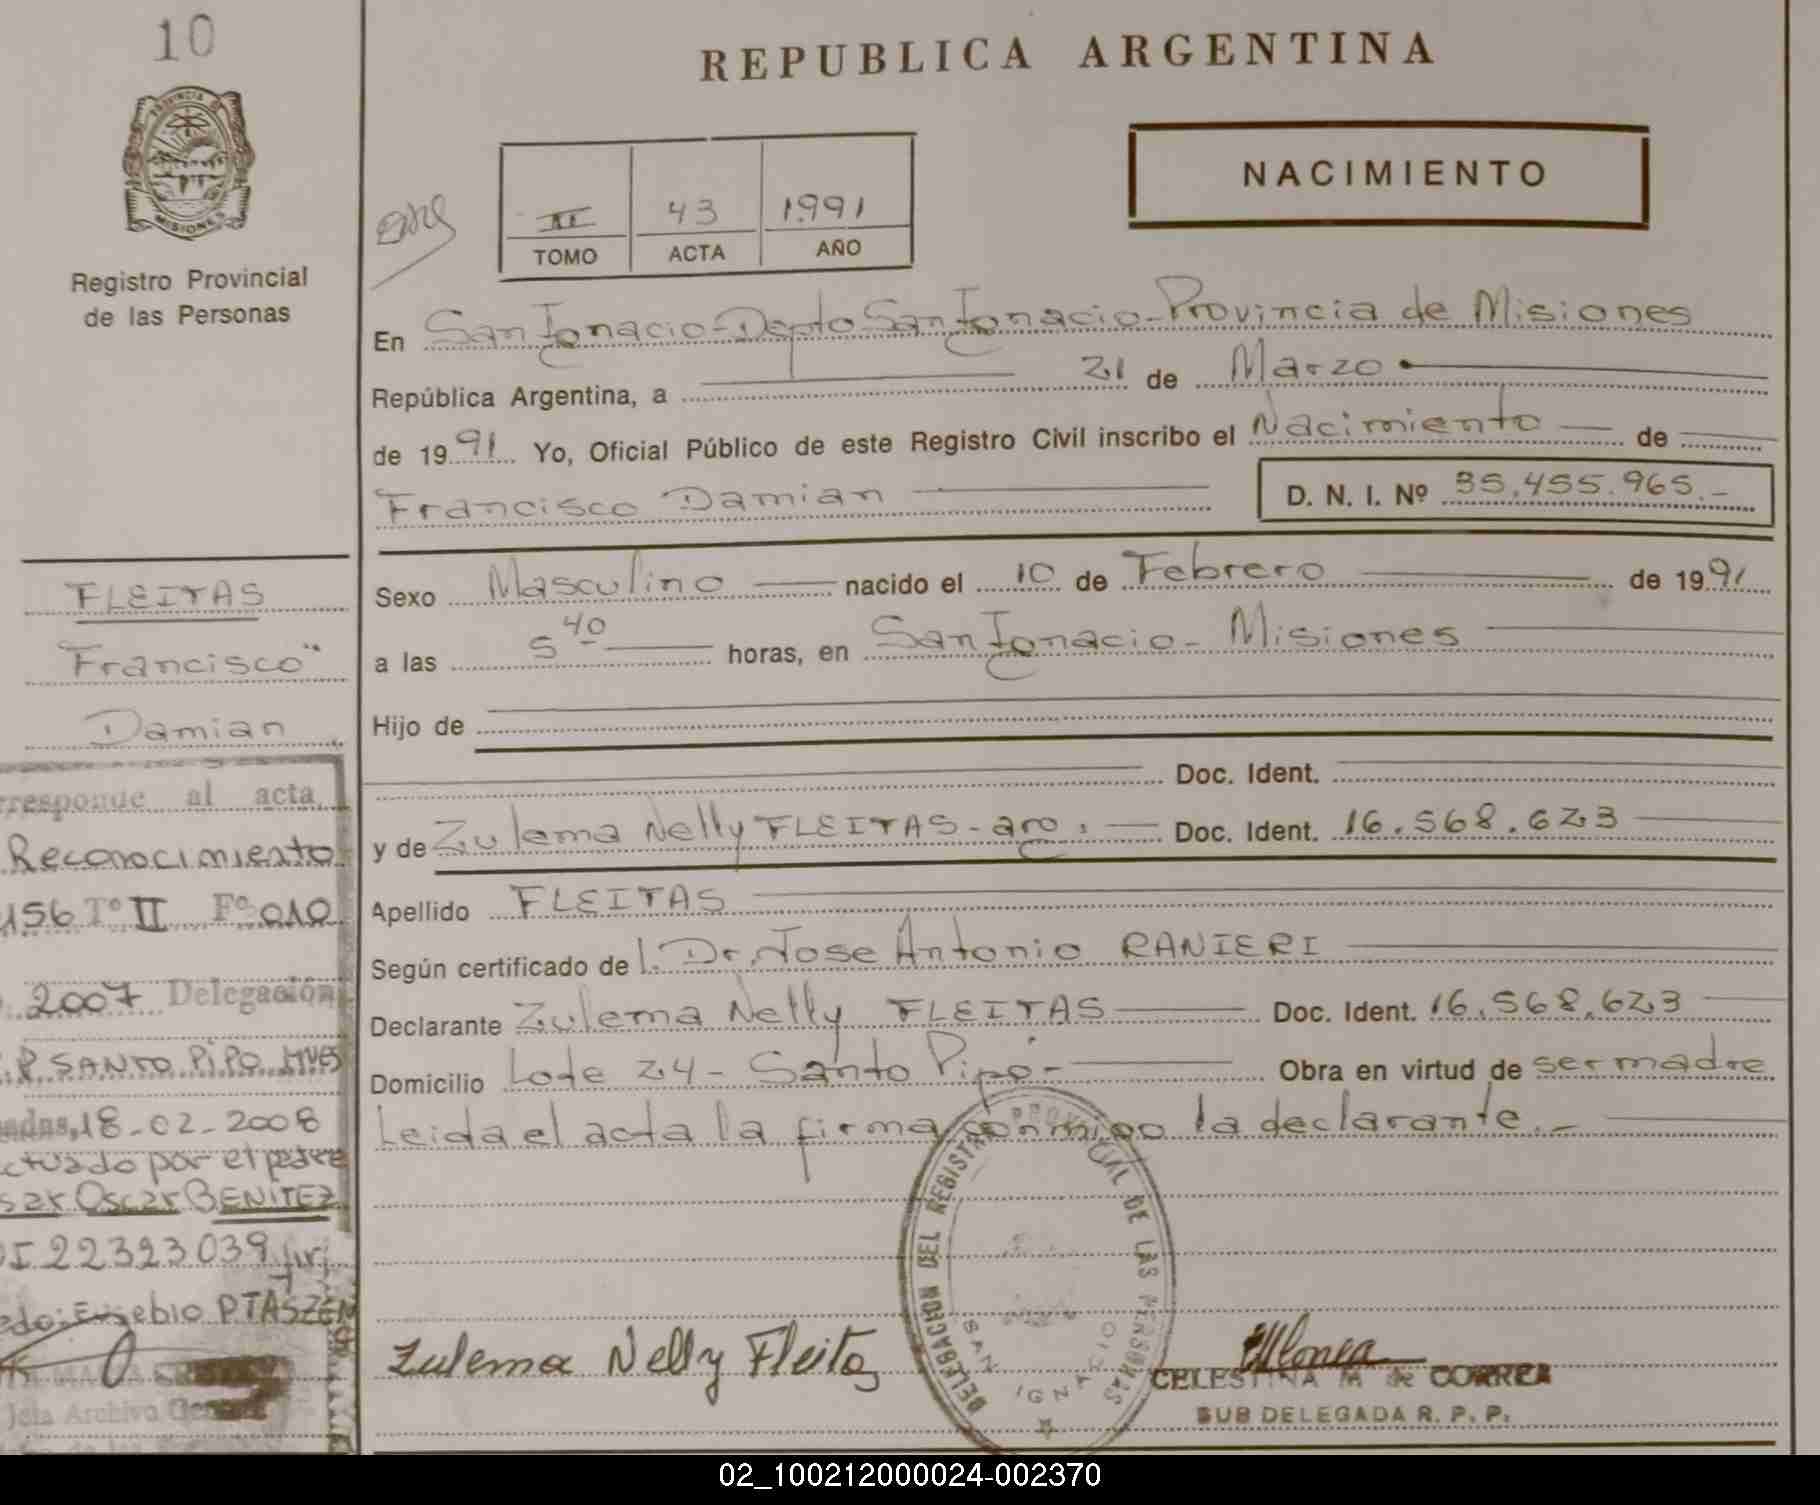 10
PROVINCIA D
MISIONES
Registro Provincial
de las Personas
FLEITAS
Francisco
Damian
rresponde al acta
Reconocimiento
156 T° II F° 010
2007 Delegación
R. SANTO PIPO MNES
adas, 18-02-2008
ctuado por el padre
sar Oscar BENITEZ
I 22323039
edo: Eusebio PTASZEN
Jefa Archivo General
REPUBLICA ARGENTINA
NACIMIENTO
II 43 1991
TOMO ACTA AÑO
En San Ignacio-Depto San Ignacio-Provincia de Misiones
República Argentina, a 21 de Marzo
de 1991 Yo, Oficial Público de este Registro Civil inscribo el Nacimiento de
Francisco Damian D. N. I. Nº 35.455.965.-
Sexo Masculino nacido el 10 de Febrero de 1991
a las 5 40 horas, en San Ignacio- Misiones
Hijo de
Doc. Ident.
y de Zulema Nelly FLEITAS-arg. Doc. Ident. 16.568.623
Apellido FLEITAS
Según certificado de l. Dr. Jose Antonio RANIERI
Declarante Zulema Nelly FLEITAS Doc. Ident. 16.568.623
Domicilio Lote 24- Santo Pipó- Obra en virtud de ser madre
Leida el acta la firma conmigo la declarante.-
DELEGACION DEL REGISTRO PROVINCIAL DE LAS PERSONAS
SAN IGNACIO
Zulema Nelly Fleitas
CELESTINA M. de CORREA
SUB DELEGADA R. P. P.
02_100212000024-002370